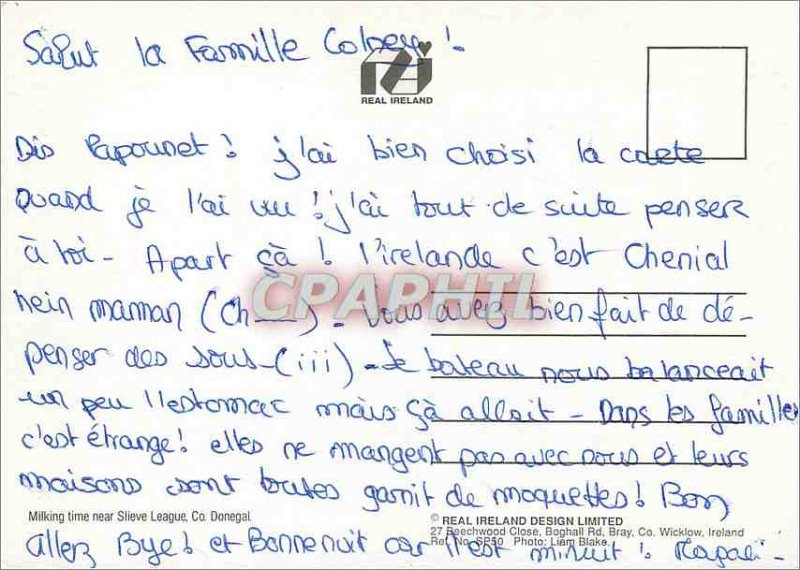 Salut la Famille !
REAL IRELAND
Dis Papounet ! j'ai bien choisi la carte
quand je l'ai vu ! j'ai tout de suite penser
à toi - Apart çà ! l'irelande c'est Chenial
hein maman (Ch__) - Vous avez bien fait de dé-
CPAPHIL
penser des sous - (iii) - Le bateau nous balanceait
un peu l'estomac mais çà allait - Dans les familles
c'est étrange ! elles ne mangent pas avec nous et leurs
maisons sont toutes garnit de moquettes ! Bon
Milking time near Slieve League, Co. Donegal.
© REAL IRELAND DESIGN LIMITED
27 Beechwood Close, Boghall Rd, Bray, Co. Wicklow, Ireland
Ref. No. SP50 Photo: Liam Blake.
allez Bye ! et Bonnenuit car il est minuit !